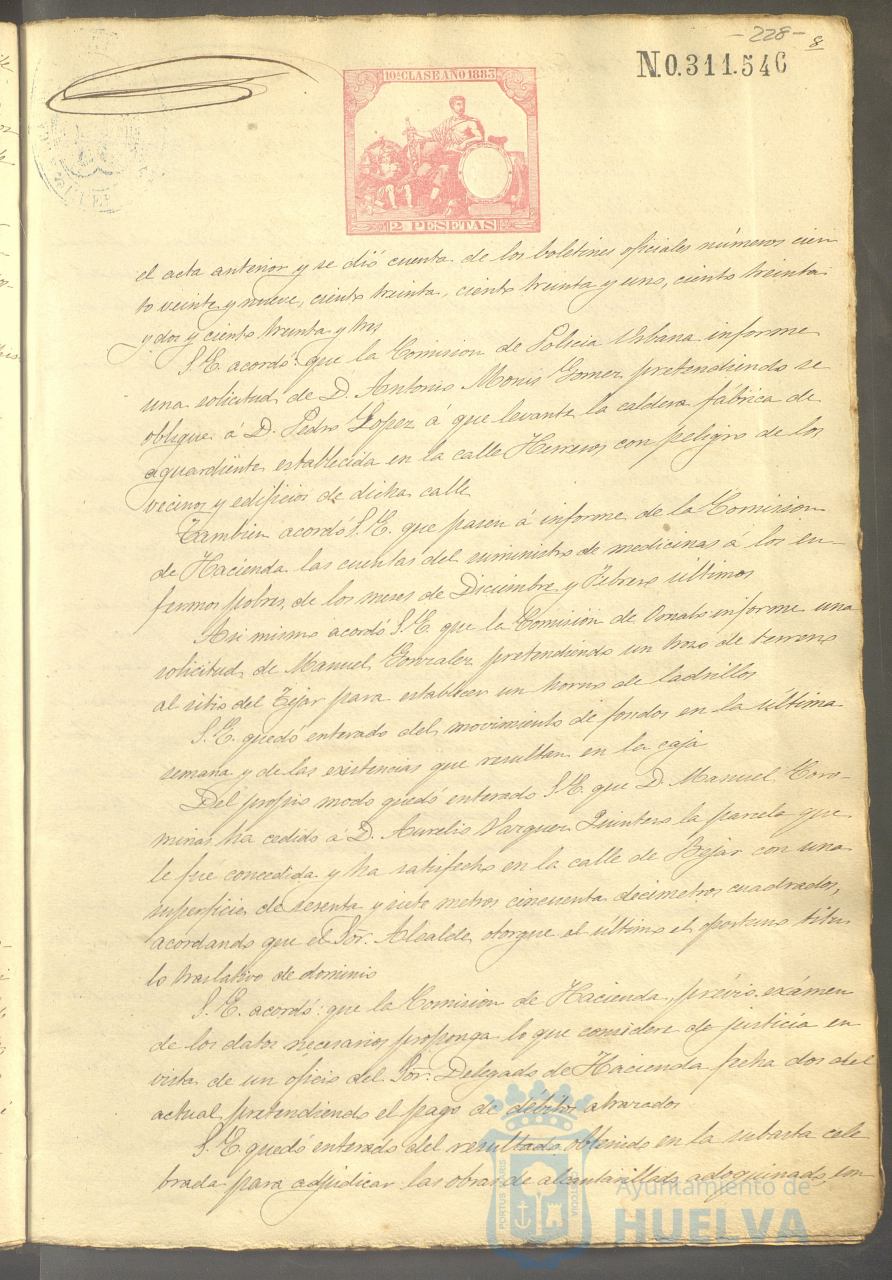 - 228 -
8
N.0.311.546
10ª CLASE AÑO 1883
2 PESETAS
el acta anterior y se dió cuenta de los boletines oficiales números cien
to veinte y nueve, ciento treinta, ciento treinta y uno, ciento treinta
y dos y ciento treinta y tres
S.E. acordó: que la Comision de Policia Urbana informe
una solicitud de D. Antonio Monis Gomez pretendiendo se
obligue á D. Pedro Lopez á que levante la caldera fábrica de
aguardiente establecida en la calle Herreros con peligro de los
vecinos y edificios de dicha calle
Tambien acordó S.E. que pasen á informe de la Comision
de Hacienda las cuentas del suministro de medicinas á los en-
fermos pobres de los meses de Diciembre y Febrero últimos
Asi mismo acordó S.E. que la Comisión de Ornato informe una
solicitud de Manuel Gonzalez pretendiendo un trozo de terreno
al sitio del Tejar para establecer un horno de ladrillos
S.E. quedo enterado del movimiento de fondos en la última
semana y de las existencias que resultan en la caja
Del propio modo quedó enterado S.E. que D. Manuel Coro-
minas ha cedido á D. Aurelio Vazquez Quintero la parcela que
le fue concedida y ha satisfecho en la calle de Bejar con una
superficie de sesenta y siete metros cincuenta decimetros cuadrados,
acordando que el Sor. Alcalde otorgue al último el oportuno títu
lo traslativo de dominio
S.E. acordó: que la Comisión de Hacienda, prévio exámen
de los datos necesarios proponga lo que considere de justicia en
vista de un oficio del Sor. Delegado de Hacienda fecha dos del
actual pretendiendo el pago de débitos atrazados
S.E. quedó enterado del resultado obtenido en la subasta cele
brada para adjudicar las obras de alcantarillado, adoquinado, em
PORTUS MARIS
CUSTODIA
Ayuntamiento de
HUELVA